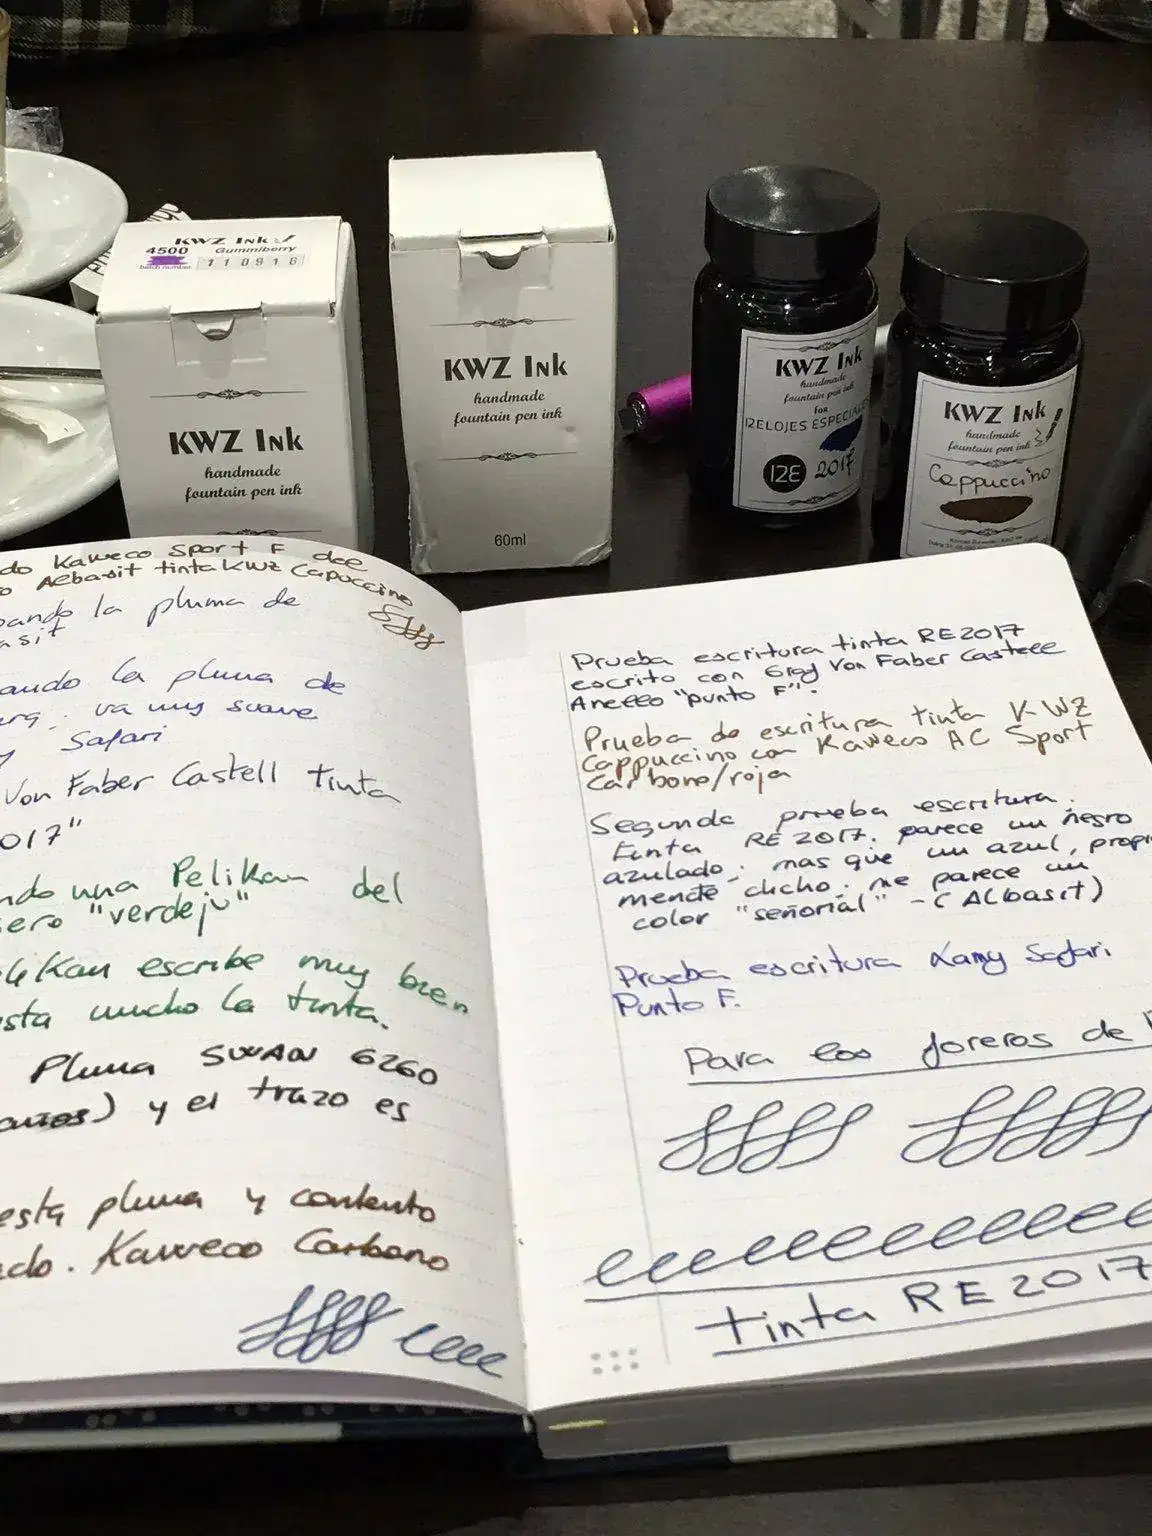 KWZ Ink
4500 Gummiberry
batch number 110916
KWZ Ink
handmade
fountain pen ink
KWZ Ink
handmade
fountain pen ink
60ml
KWZ Ink
handmade
fountain pen ink
for
RELOJES ESPECIALES
RE 2017
KWZ Ink
handmade
fountain pen ink
Cappuccino
do Kaweco Sport F de
Albasit tinta KWZ Capuccino
ando la pluma de
asit
ando la pluma de
va muy suave
Safari
Von Faber Castell tinta
017"
ndo una Pelikan del
ero "verdeju"
likan escribe muy bien
sta mucho la tinta.
Pluma SWAN 6260
años) y el trazo es
esta pluma y contento
do. Kaweco Carbono
Prueba escritura tinta RE2017
escrito con Graf Von Faber Castell
Anello "punto F".
Prueba de escritura tinta KWZ
Cappuccino con Kaweco AC Sport
Carbono/roja
Segunda prueba escritura.
tinta RE 2017. parece un negro
azulado; mas que un azul, propia
mente dicho. me parece un
color "señorial" -(Albasit)
Prueba escritura Lamy Safari
Punto F.
Para los foreros de
tinta RE 2017